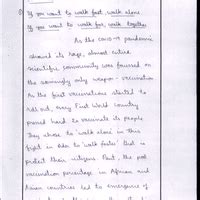 If you want to walk fast, walk alone
If you want to walk far, walk together
As the COVID-19 pandemic
showed its rage, almost entire
scientific community was focussed on
the seemingly only weapon - vaccination
As the first vaccinations started to
roll out, every First World Country
pressed hard to vaccinate its people.
They chose to walk alone in this
fight in order to walk faster that is
protect their citizens. But, the poor
vaccination percentage in African and
Asian countries led to emergence of